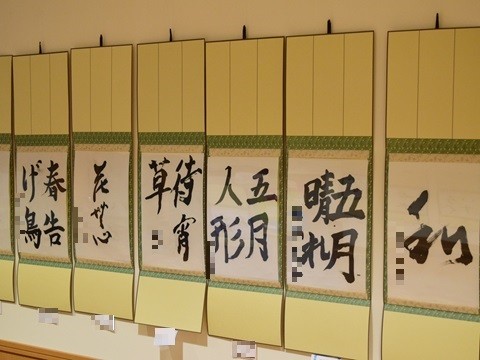 和
五月
晴れ
五月
人形
待宵
草
花無心
春告
げ鳥